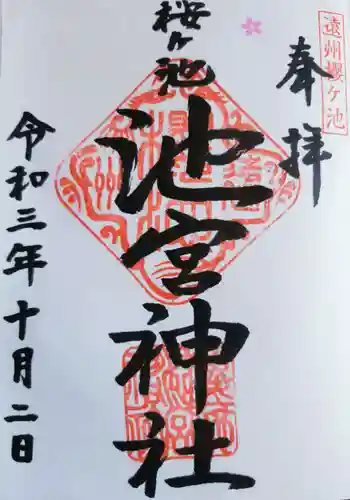 遠州櫻ヶ池
奉拝
櫻ヶ池
池宮神社
令和三年十月二日